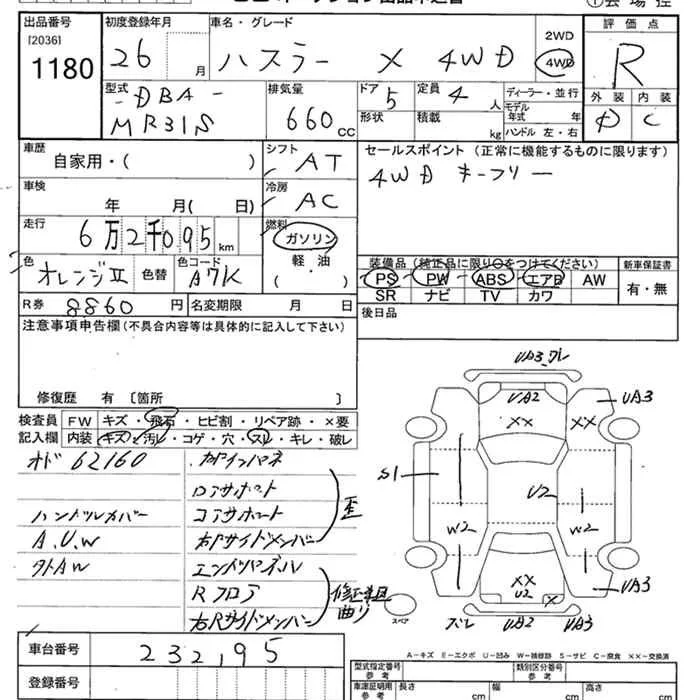 出品番号
[2036]
1180
初度登録年月
26 月
車名・グレード
ハスラー X 4WD
2WD
4WD
評価点
R
外装 内装
D C
型式
-DBA-
MR31S
排気量
660 CC
ドア
5
形状
定員
4 人
積載
kg
ディーラー・並行
モデル年式 年
ハンドル 左・右
車歴
自家用・( )
シフト
AT
セールスポイント (正常に機能するものに限ります)
4WD キーフリー
車検
年 月( 日)
冷房
AC
走行
6万2千095 km
燃料
ガソリン
軽・油
( )
色
オレンジII
色替
色コード
A7K
装備品(純正品に限り○をつけてください)
PS PW ABS エアB AW
SR ナビ TV カワ
新車保証書
有・無
R券
8860 円
名変期限 月 日
後日品
注意事項申告欄(不具合内容等は具体的に記入して下さい)
修復歴 有 〔箇所 〕
検査員記入欄
FW キズ・飛石・ヒビ割・リペア跡・×要
内装 キズ・汚レ・コゲ・穴・スレ・キレ・破レ
オド 62160
ハンドルカバー
A.U.W
外AW
右Fインパネ
コアサポート
右Fサイドメンバー
歪
エンドパネル
Rフロア
右Rサイドメンバー
曲り
UA3
UA2
XX
XX
UA3
S1
U2
W2
W2
XX
U2
X
UA3
ズレ
UA2
UA3
スペア
A-キズ E-エクボ U-凹み W-補修跡 S-サビ C-腐食 ××-交換済
車台番号
232195
登録番号
型式指定番号
参考
類別区分番号
参考
車庫証明用
参考
長さ cm
幅 cm
高さ cm